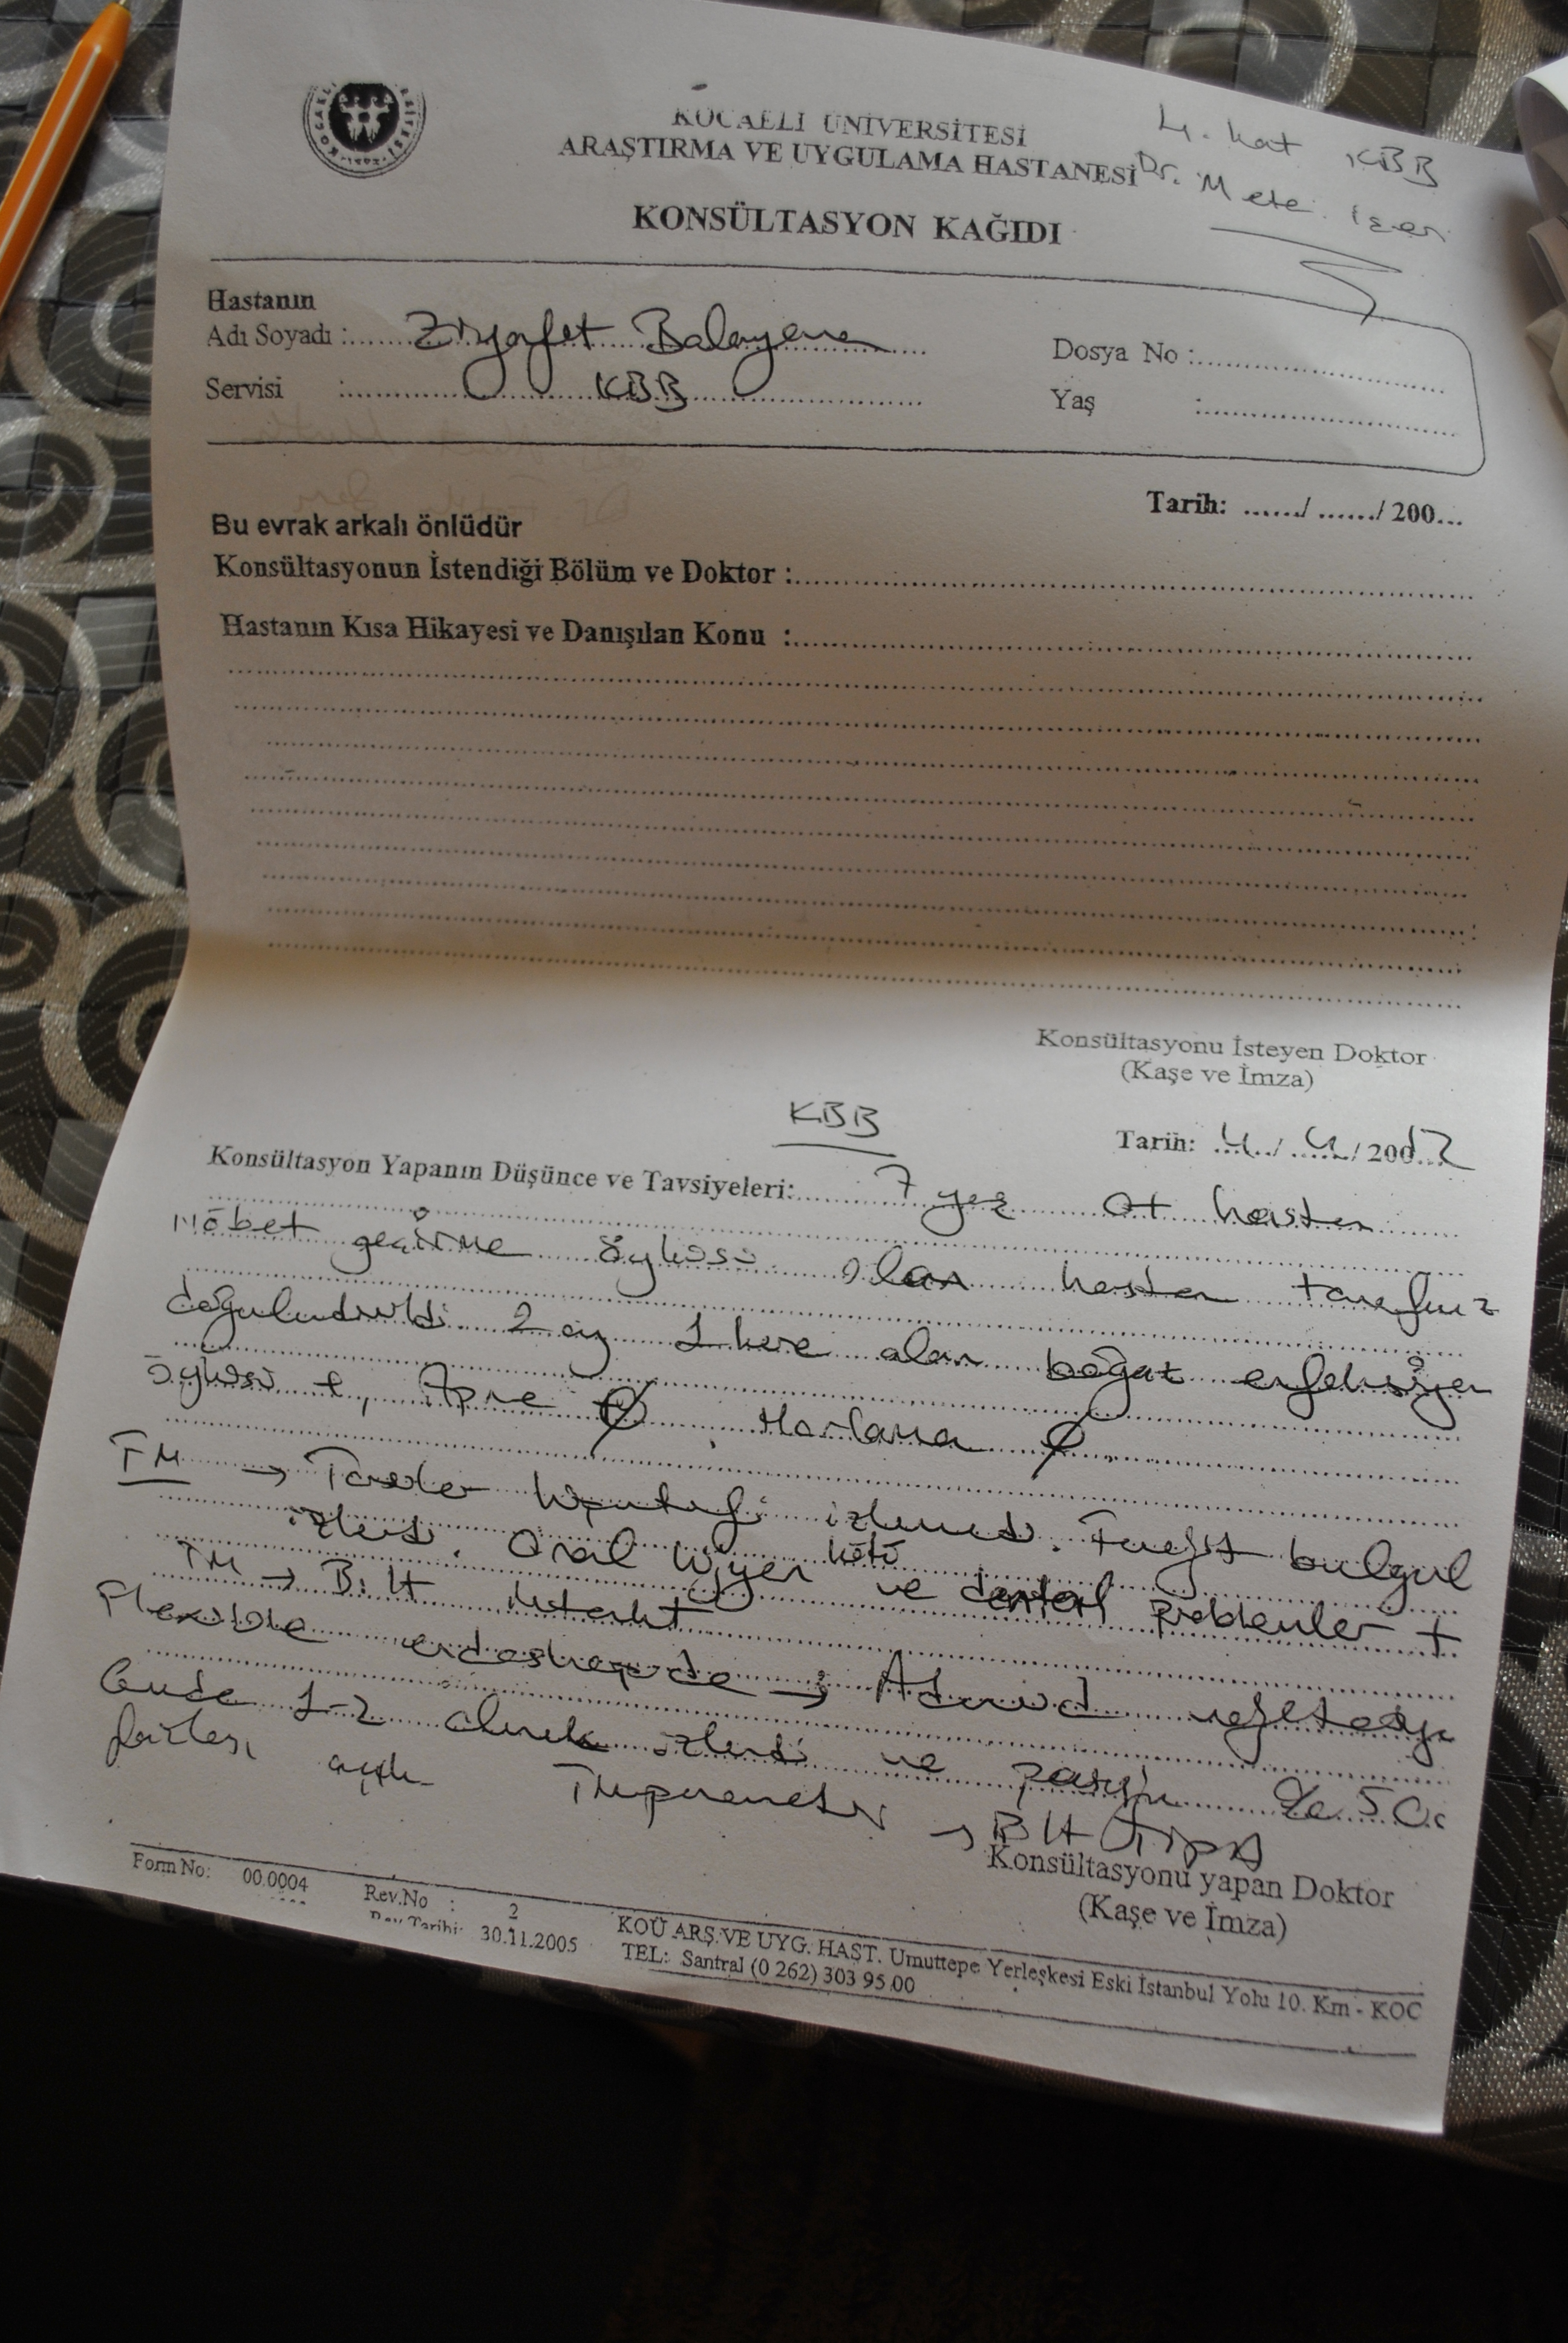 KOCAELİ ÜNİVERSİTESİ
ARAŞTIRMA VE UYGULAMA HASTANESİ
4. kat KBB
Dr. Mete
KONSÜLTASYON KAĞIDI
Hastanın
Adı Soyadı : Ziyafet Balayeva
Dosya No :
Servisi : KBB
Yaş :
Tarih: ....../ ....../ 200...
Bu evrak arkalı önlüdür
Konsültasyonun İstendiği Bölüm ve Doktor :
Hastanın Kısa Hikayesi ve Danışılan Konu :
Konsültasyonu İsteyen Doktor
(Kaşe ve İmza)
KBB
Tarih: 4 / 4 / 200
Konsültasyon Yapanın Düşünce ve Tavsiyeleri: 7 yaş hasta
nöbet geçirme öyküsü olan hasta
2 ay 1 kere olan boğaz enfeksiyon
öyküsü +, Apne Ø, Horlama Ø
FM → izlenmedi. Farenjit bulgul
izlendi. Oral hijyen kötü ve dental problemler +
TM → Bil intakt
Flexible endoskopide → Adenoid vejetasyon
1-2 olarak izlendi ve pasajın % 50
fazlası açık Timpanometri → Bil Tip A
Konsültasyonu yapan Doktor
(Kaşe ve İmza)
Form No: 00.0004
Rev.No : 2
Rev.Tarihi: 30.11.2005
KOÜ ARŞ.VE UYG. HAST. Umuttepe Yerleşkesi Eski İstanbul Yolu 10. Km - KOC
TEL: Santral (0 262) 303 95 00